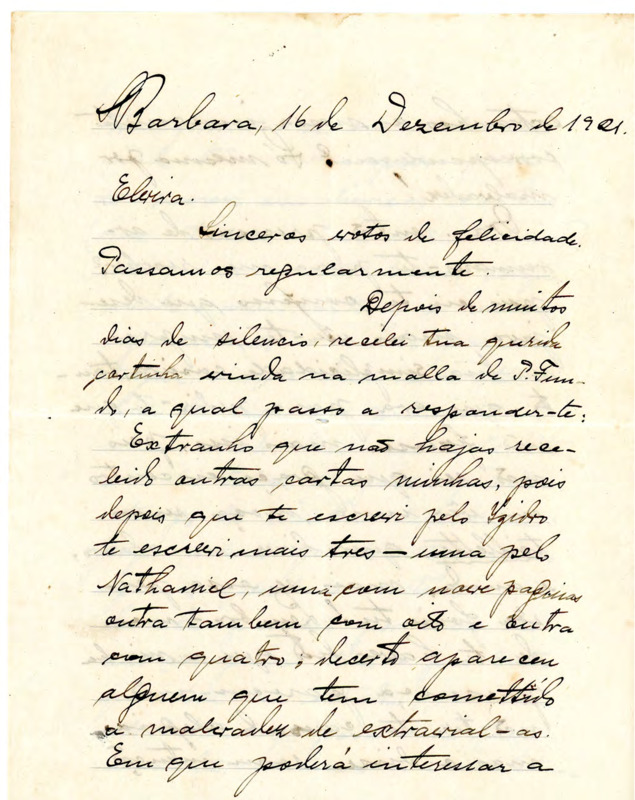 Sta Barbara, 16 de Dezembro de 1921.
Elvira.
Sinceros votos de felicidade.
Passamos regularmente.
Depois de muitos
dias de silencio, recebi tua querida
cartinha vinda na malla de P. Fun-
do, a qual passo a responder-te:
Extranho que não hajas rece-
bido outras cartas minhas, pois
depois que te escrevi pelo Izidro
te escrevi mais tres — uma pelo
Nathaniel, uma com nove paginas
outra tambem com oito e outra
com quatro; decerto appareceu
alguem que tem comettido
a malvadez de extravial-as.
Em que poderá interessar a